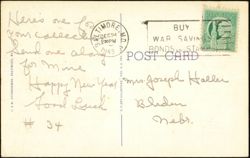 Here's one for
your collection
Send one along
for mine
Happy New Year
Good Luck
# 34
BALTIMORE, MD.
BUY
WAR SAVINGS
BONDS STAMPS
POST CARD
Mrs Joseph Haller
Bladen
Nebr.